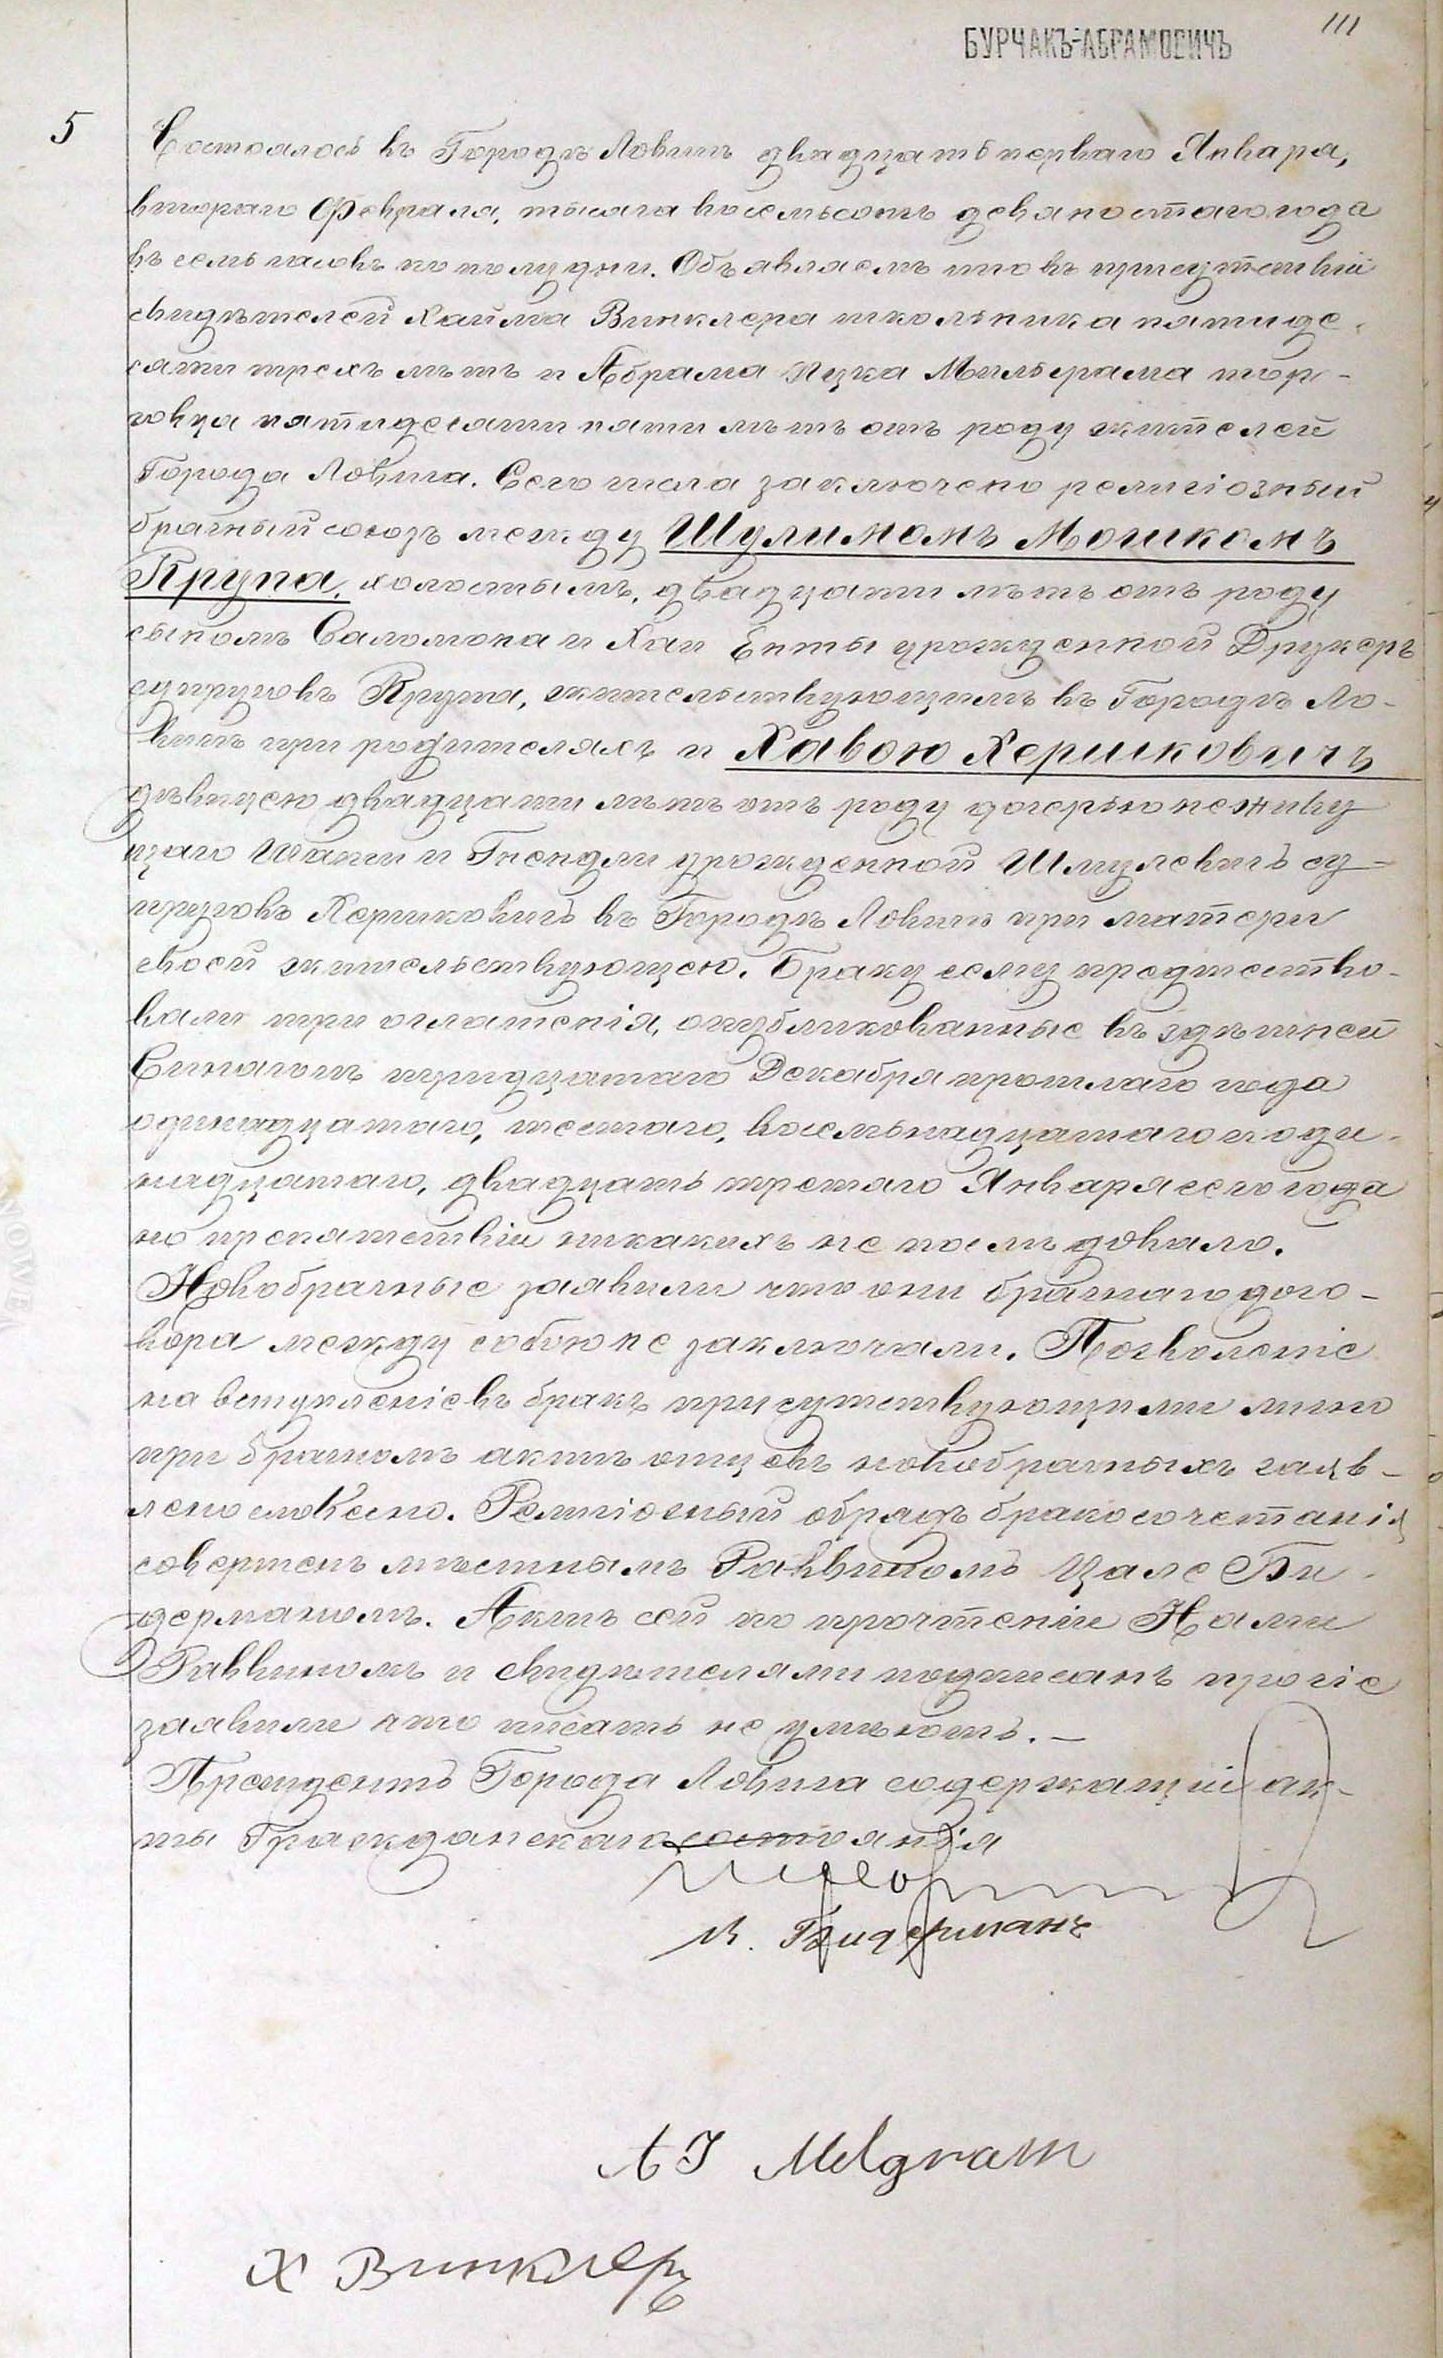 111
БУРЧАКЪ-АБРАМОВИЧЪ
5
Состоялось въ Городѣ Ловичѣ двадцать перваго Января,
втораго Февраля, тысяча восемьсотъ девяностаго года
въ семь часовъ по полудни. Объявляемъ что въ присутствіи
свидѣтелей Хаима Винклера школьника пятиде-
сяти трехъ лѣтъ и Абрама Ицка Мильграма тор-
говца пятидесяти пяти лѣтъ отъ роду жителей
Города Ловича. Сего числа заключено религіозный
брачный союзъ между Шулимомъ Мошкомъ
Крупа, холостымъ, двадцати лѣтъ отъ роду
сыномъ Саломона и Хаи Енты урожденной Друкеръ
супруговъ Крупа, жительствующимъ въ Городѣ Ло-
вичѣ при родителяхъ и Хавою Хершковичъ
дѣвицею двадцати лѣтъ отъ роду дочерью неживу
щаго и Гнендли урожденной Шмулевичъ су-
пруговъ Хершковичъ въ Городѣ Ловичѣ при матери
своей жительствующею. Браку сему предшество-
вали три оглашенія, опубликованные въ здѣшней
Синагогѣ тридцатаго Декабря прошлаго года
одинадцатаго, шестаго, восемьнадцатаго и оди-
надцатаго, двадцать третьяго Января сего года
но препятствіи никакихъ не послѣдовало.
Новобрачные заявили что они брачнаго дого-
вора между собою не заключали. Позволеніе
на вступленіе въ бракъ присутствующими лично
при брачномъ актѣ отцевъ новобрачныхъ заяв-
лено словесно. Религіозный обрядъ бракосочетанія
совершенъ мѣстнымъ Раввиномъ Цале Би-
дерманомъ. Актъ сей по прочтеніи Нами
Раввиномъ и свидѣтелями подписанъ прочіе
заявили что писать не умѣютъ. —
Президентъ Города Ловича содержащій ак-
ты Гражданскаго состоянія
Бидерманъ
A I Melgram
Х Винклеръ